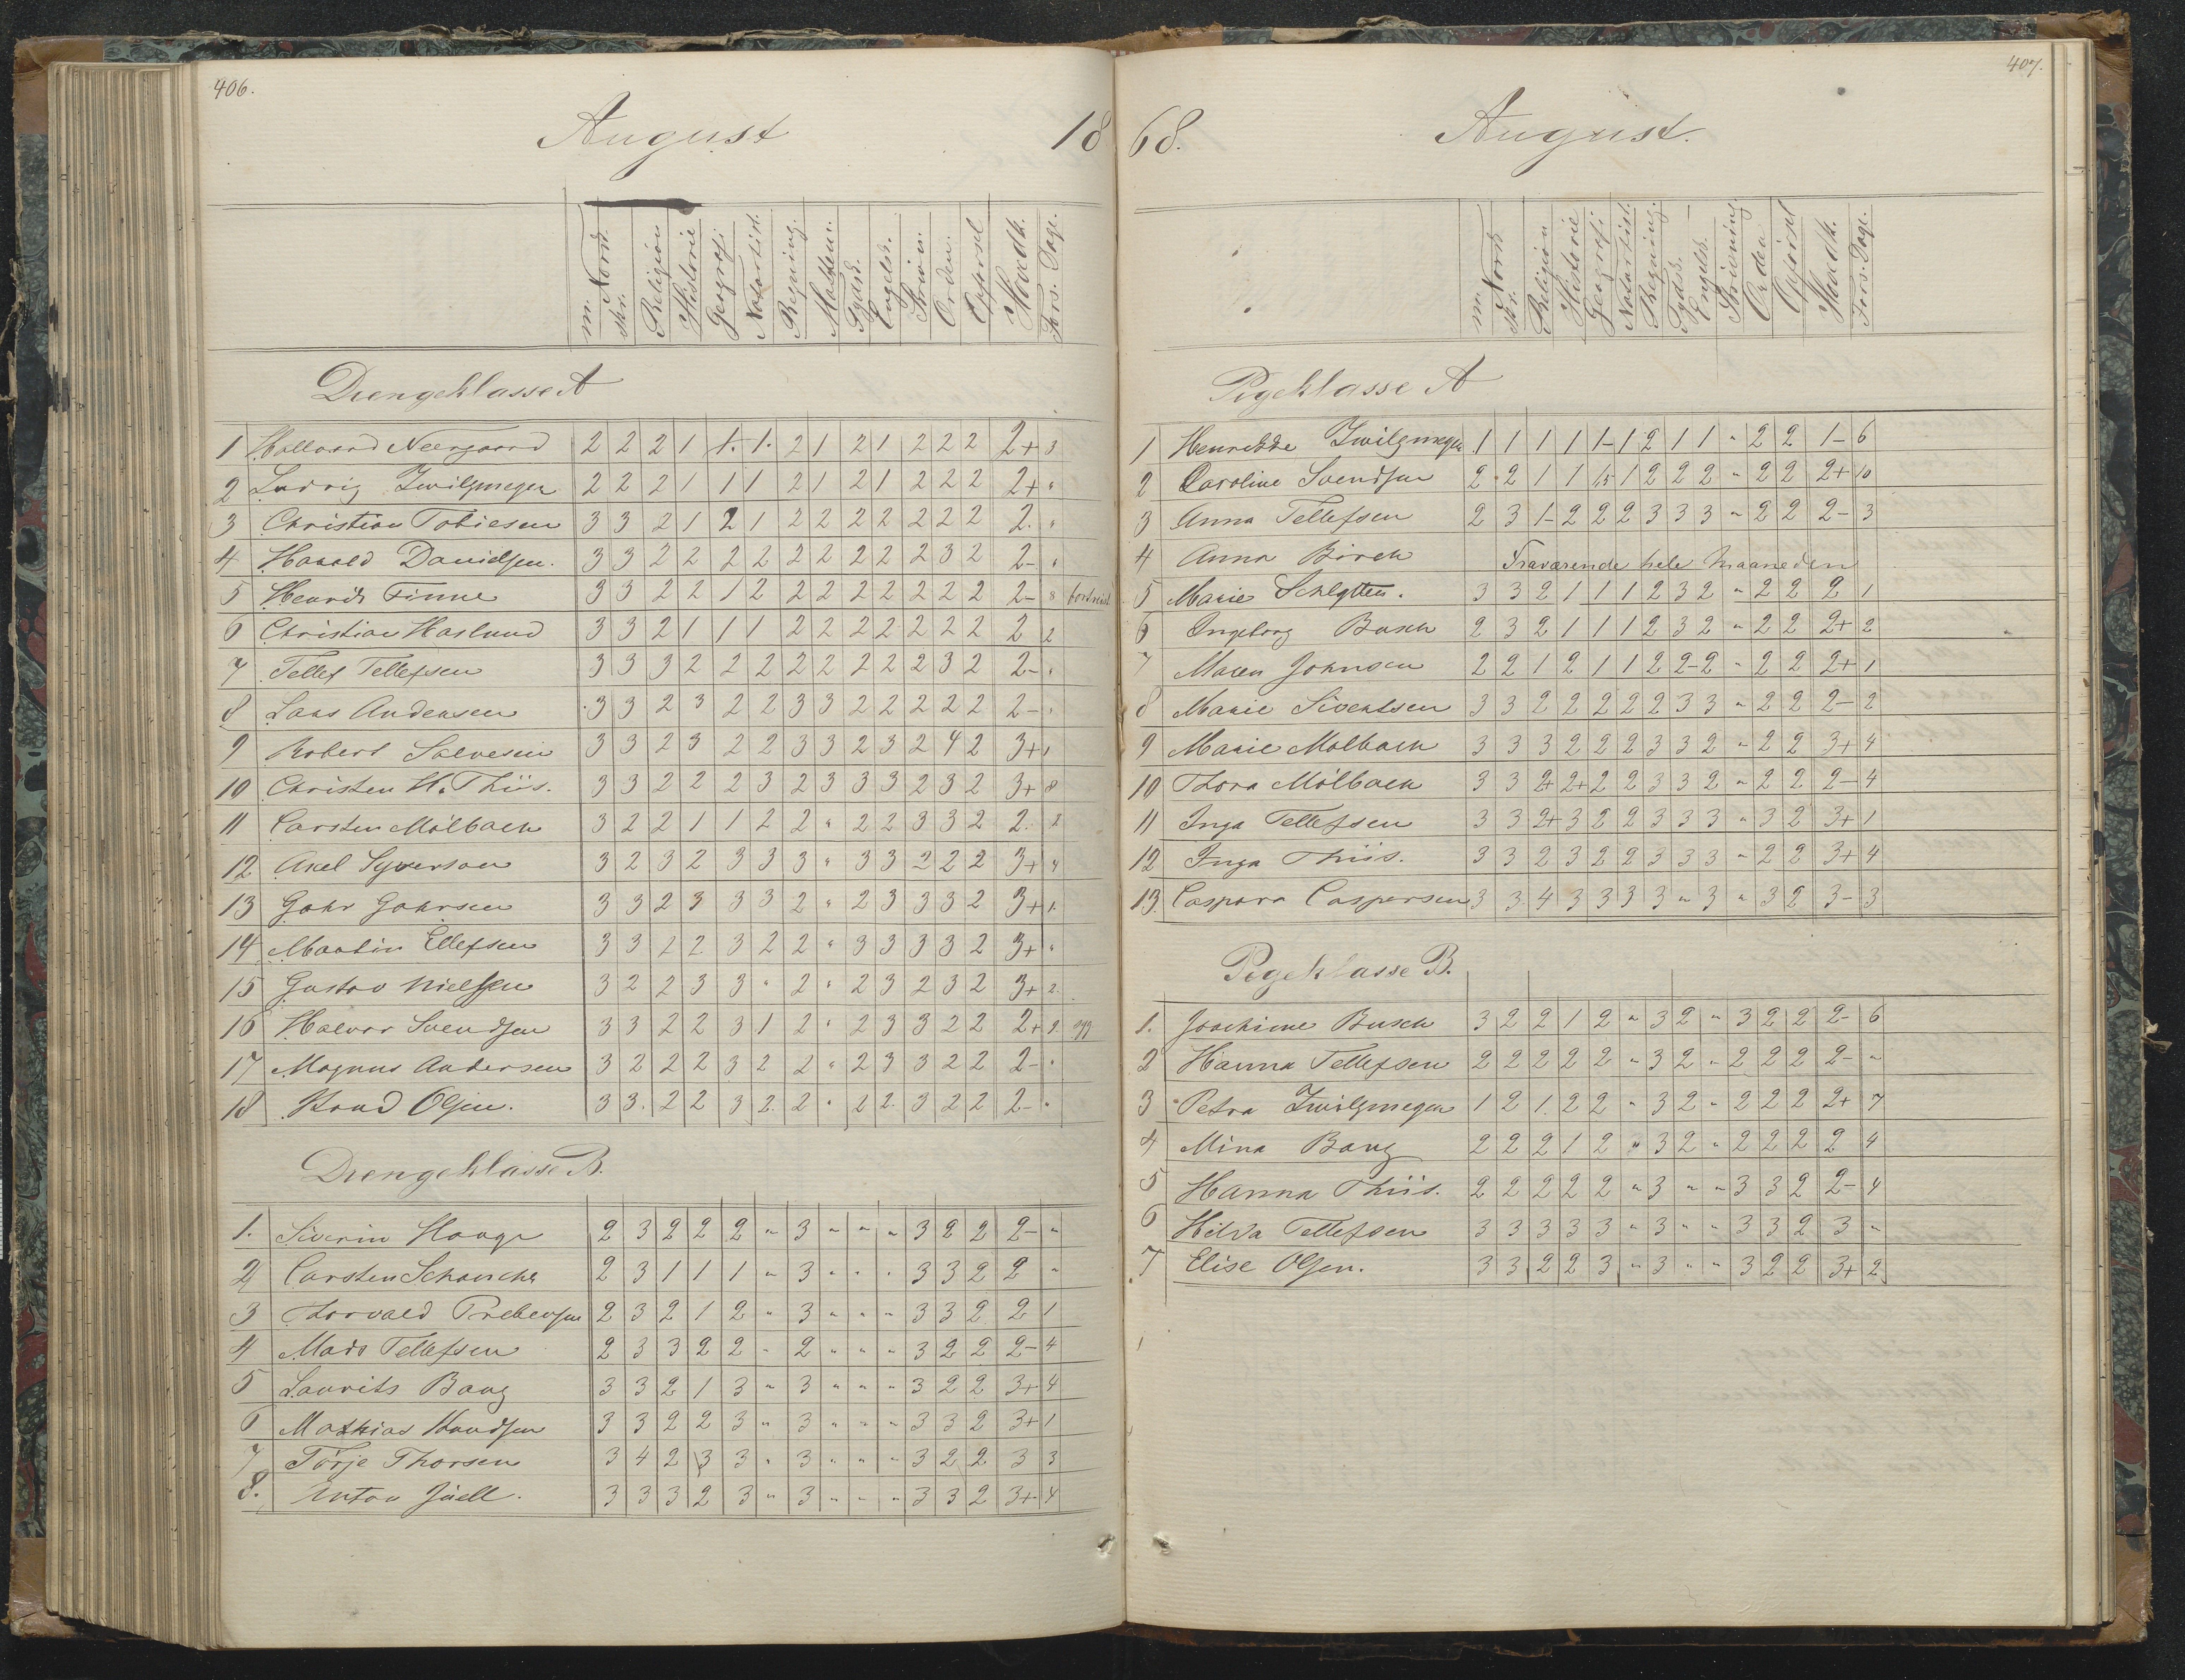 406.
August
18
m. Nord. skr. Religion Historie Geografi Naturhist. Regning. Mathem. Tydsk. Engelsk. Skrivn. Orden. Opførsel Hovedk. Fors. Dage.
Drengeklasse A
1 Hallvard Neergaard 2 2 2 1 1. 1. 2 1 2 1 2 2 2 2+ 3
2 Ludvig Zwilgmeyer 2 2 2 1 1 1 2 1 2 1 2 2 2 2+ "
3 Christian Tobiesen 3 3 2 1 2 1 2 2 2 2 2 2 2 2. "
4 Harald Danielsen. 3 3 2 2 2 2 2 2 2 2 2 3 2 2- "
5 Henrik Finne 3 3 2 2 1 2 2 2 2 2 2 2 2 2- 8
6 Christian Haslund 3 3 2 1 1 1 2 2 2 2 2 2 2 2 2
7 Tellef Tellefsen 3 3 3 2 2 2 2 2 2 2 2 3 2 2- "
8 Lars Andersen 3 3 2 3 2 2 3 3 2 2 2 2 2 2- "
9 Robert Salvesen 3 3 2 3 2 2 3 3 2 3 2 4 2 3+ 1
10 Christen H. Thiis. 3 3 2 2 2 3 2 3 3 3 2 3 2 3+ 8
11 Carsten Mölbach 3 2 2 1 1 2 2 " 2 2 3 3 2 2. 2
12 Axel Syverson 3 2 3 2 3 3 3 " 3 3 2 2 2 3+ 4
13 Gahr Gahrsen 3 3 2 3 3 3 2 " 2 3 3 3 2 3+ 1.
14 Martin Ellefsen 3 3 2 2 3 2 2 " 3 3 3 3 2 3+ "
15 Gustav Nielsen 3 2 2 3 3 " 2 " 2 3 2 3 2 3+ 2.
16 Halvor Svendsen 3 3 2 2 3 1 2 " 2 3 3 2 2 2+ 2.
17 Magnus Andersen 3 2 2 2 3 2 2 " 2 3 3 2 2 2- "
18 Knud Olsen. 3 3. 2 2 3 2. 2 " 2 2. 3 2 2 2- "
Drengeklasse B.
1. Siverin Hauge 2 3 2 2 2 " 3 " " " 3 2 2 2- "
2 Carsten Schanche 2 3 1 1 1 " 3 " " " 3 3 2 2 "
3 Thorvald Prebensen 2 3 2 1 2 " 3 " " " 3 3 2 2 1
4 Mads Tellefsen 2 3 3 2 2 " 2 " " " 3 2 2 2- 4
5 Laurits Bang 3 3 2 1 3 " 3 " " " 3 2 2 3+ 4
6 Mathias Knudsen 3 3 2 2 3 " 3 " " " 3 3 2 3+ 1
7 Törje Thorsen 3 4 2 3 3 " 3 " " " 3 2 2 3 3
8. Anton Juell. 3 3 3 2 3 " 3 " " " 3 3 2 3+ 4
407.
68.
August.
m. Nord. skr. Religion Historie Geografi Naturhist. Regning. Tydsk. Engelsk. Skrivning Orden Opførsel Hovedk. Fors. Dage.
Pigeklasse A
1 Henrikke Zwilgmeyer 1 1 1 1 1- 1 2 1 1 " 2 2 1- 6
2 Caroline Svendsen 2 2 1 1 1,5 1 2 2 2 " 2 2 2+ 10
3 Anna Tellefsen 2 3 1- 2 2 2 3 3 3 " 2 2 2- 3
4 Anna Birch Fraværende hele Maaneden
5 Marie Schlytter. 3 3 2 1 1 1 2 3 2 " 2 2 2 1
6 Ingeborg Busch 2 3 2 1 1 1 2 3 2 " 2 2 2+ 2
7 Maren Johnsen 2 2 1 2 1 1 2 2- 2 " 2 2 2+ 1
8 Marie Sivertsen 3 3 2 2 2 2 2 3 3 " 2 2 2- 2
9 Marie Mölbach 3 3 3 2 2 2 3 3 2 " 2 2 3+ 4
10 Thora Mölbach 3 3 2+ 2+ 2 2 3 3 2 " 2 2 2- 4
11 Inga Tellefsen 3 3 2+ 3 2 2 3 3 3 " 3 2 3+ 1
12 Inga Thiis. 3 3 2 3 2 2 3 3 3 " 2 2 3+ 4
13. Caspara Caspersen 3 3 4 3 3 3 3 " 3 " 3 2 3- 3
Pigeklasse B.
1. Joachime Busch 3 2 2 1 2 " 3 2 " 3 2 2 2- 6
2 Hanna Tellefsen 2 2 2 2 2 " 3 2 " 2 2 2 2- "
3 Petra Zwilgmeyer 1 2 1. 2 2 " 3 2 " 2 2 2 2+ 7
4 Mina Bang 2 2 2 1 2 " 3 2 " 2 2 2 2 4
5 Hanna Thiis. 2 2 2 2 2 " 3 " " 3 3 2 2- 4
6 Hilda Tellefsen 3 3 3 3 3 " 3 " " 3 3 2 3 "
7 Elise Olsen. 3 3 2 2 3 " 3 " " 3 2 2 3+ 2